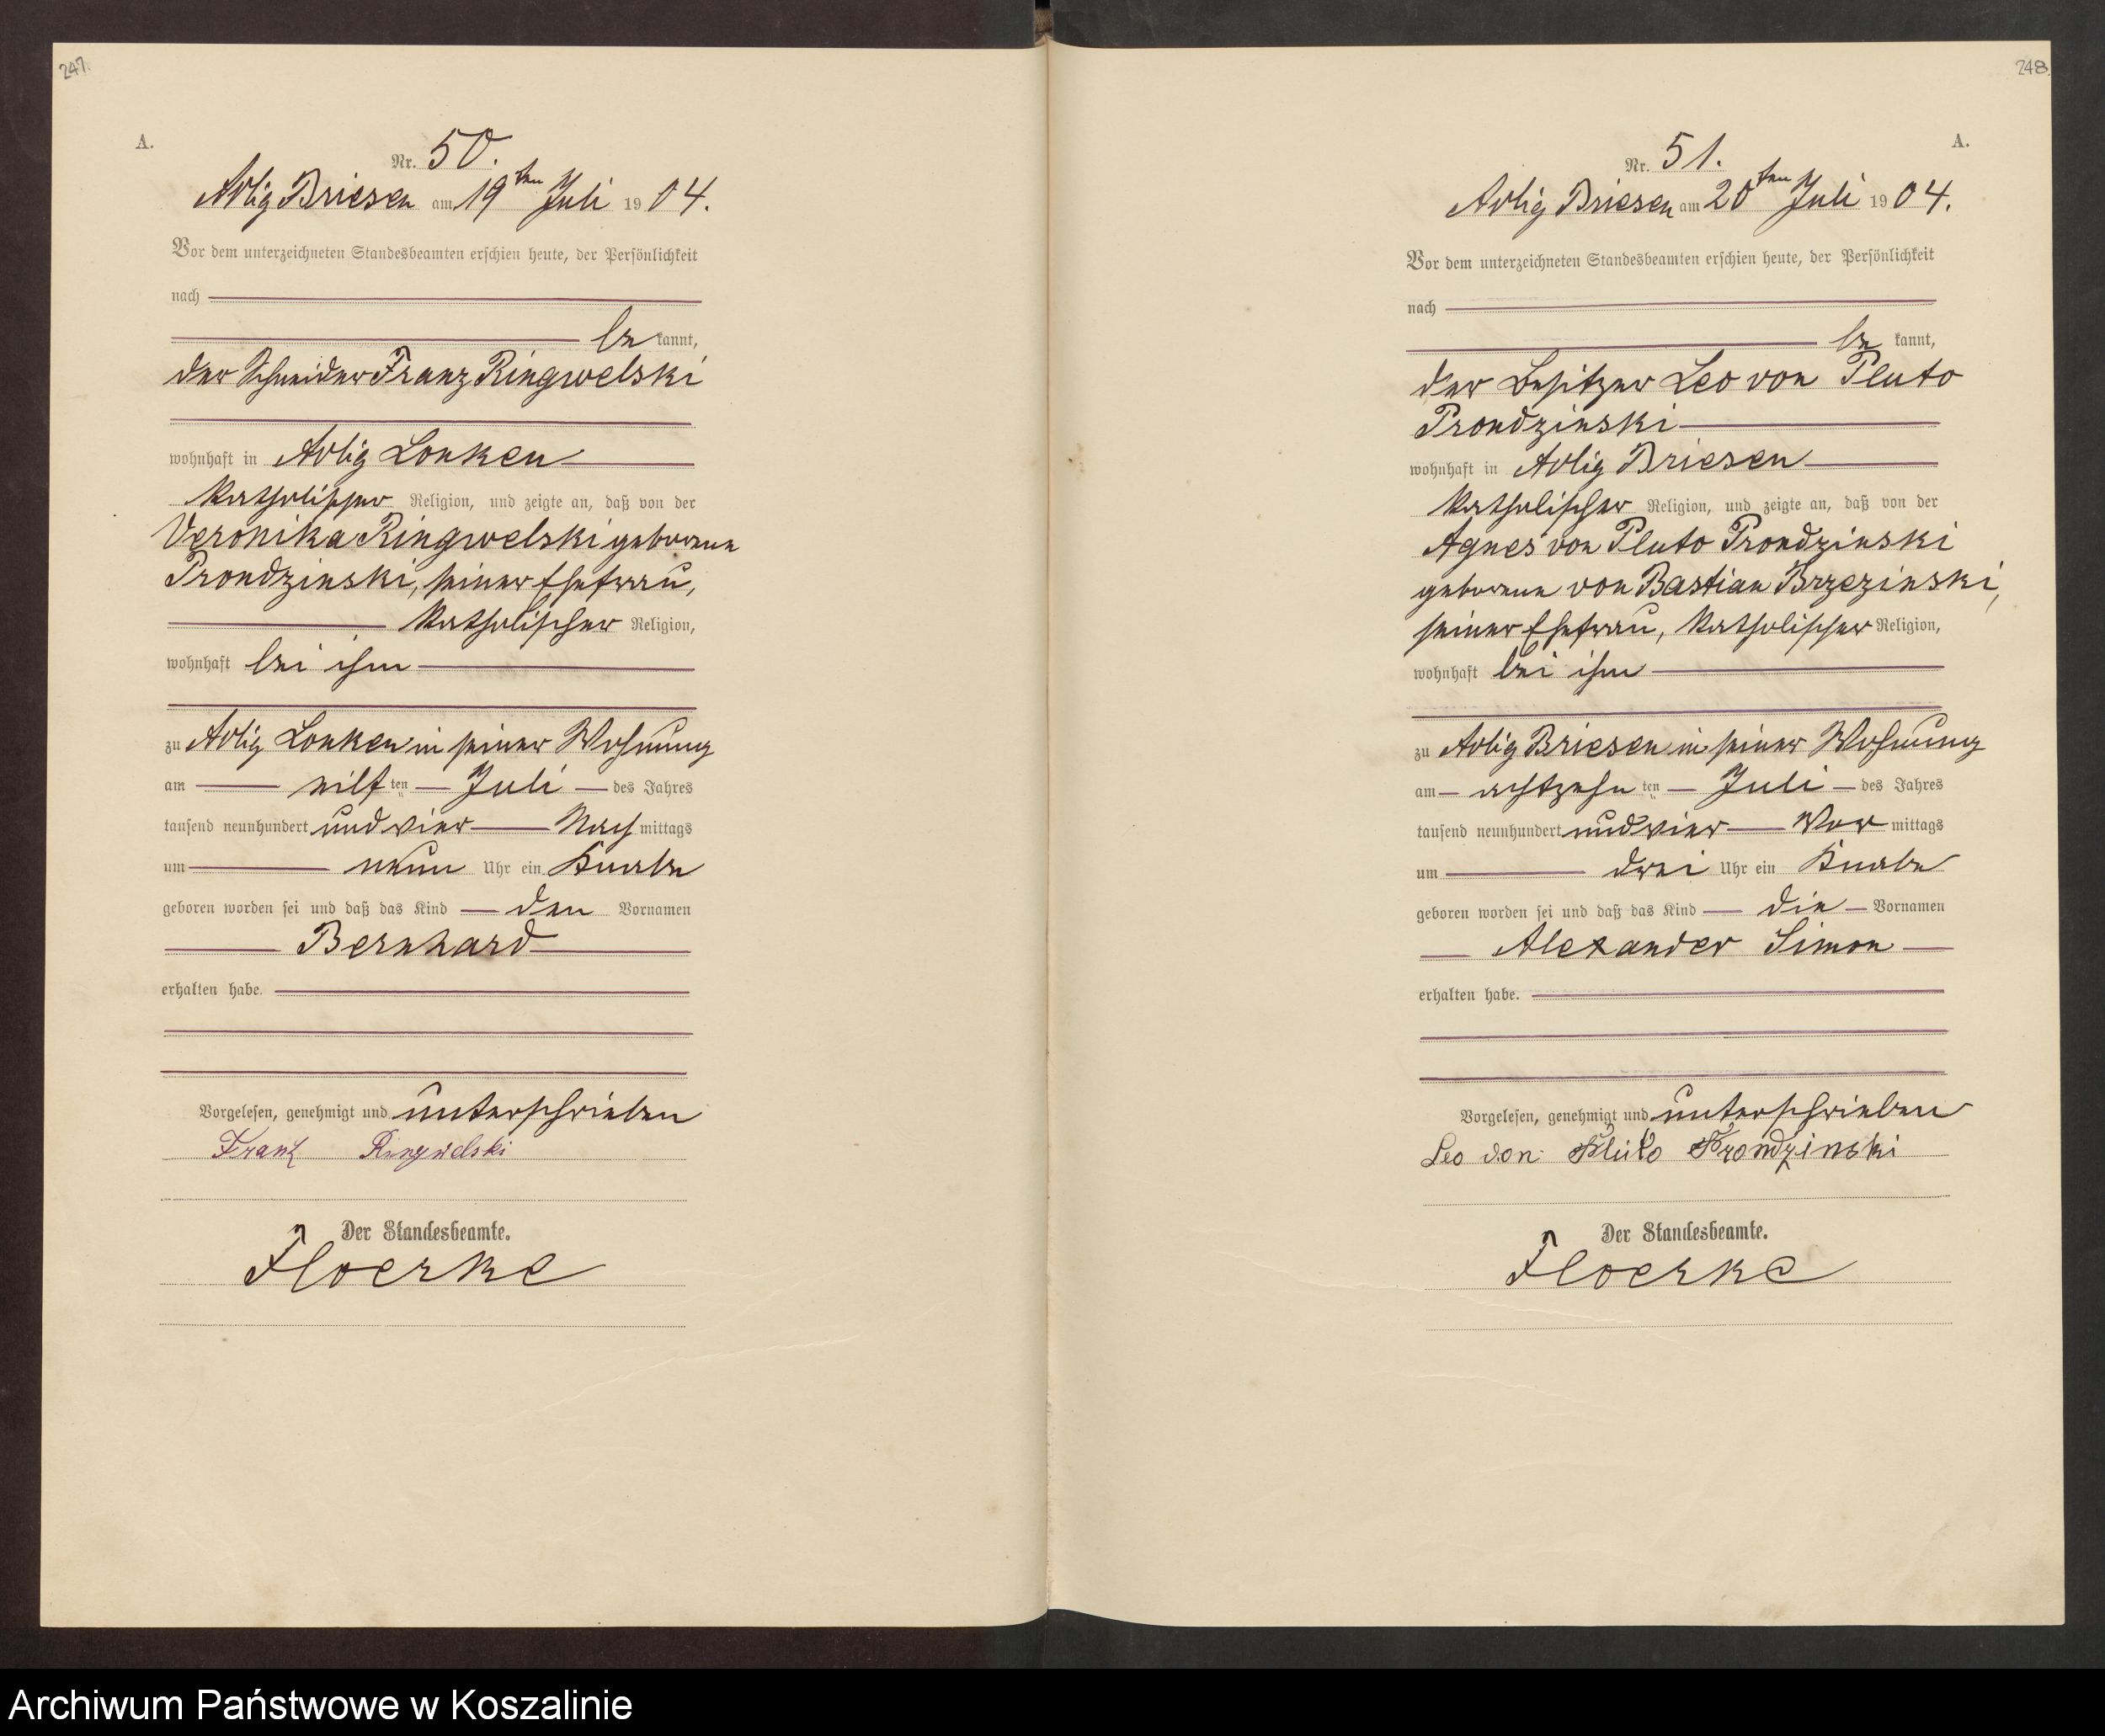 247.
A.
Nr. 50.
Adlig Briesen am 19ten Juli 1904.
Vor dem unterzeichneten Standesbeamten erschien heute, der Persönlichkeit
nach
be kannt,
der Schneider Franz Ringwelski
wohnhaft in Adlig Lonken
katholischer Religion, und zeigte an, daß von der
Veronika Ringwelski geborene
Prondzinski, seiner Ehefrau,
katholischer Religion,
wohnhaft bei ihm
zu Adlig Lonken in seiner Wohnung
am elf ten Juli des Jahres
tausend neunhundert und vier Nach mittags
um neun Uhr ein Knabe
geboren worden sei und daß das Kind den Vornamen
Bernhard
erhalten habe.
Vorgelesen, genehmigt und unterschrieben
Franz Ringwelski
Der Standesbeamte.
Floerke
248.
A.
Nr. 51.
Adlig Briesen am 20ten Juli 1904.
Vor dem unterzeichneten Standesbeamten erschien heute, der Persönlichkeit
nach
be kannt,
der Besitzer Leo von Pluto
Prondzinski
wohnhaft in Adlig Briesen
katholischer Religion, und zeigte an, daß von der
Agnes von Pluto Prondzinski
geborene von Bastian Brzezinski,
seiner Ehefrau, katholischer Religion,
wohnhaft bei ihm
zu Adlig Briesen in seiner Wohnung
am achtzehn ten Juli des Jahres
tausend neunhundert und vier Vor mittags
um drei Uhr ein Knabe
geboren worden sei und daß das Kind die Vornamen
Alexander Simon
erhalten habe.
Vorgelesen, genehmigt und unterschrieben
Leo von Pluto Prondzinski
Der Standesbeamte.
Floerke
Archiwum Państwowe w Koszalinie